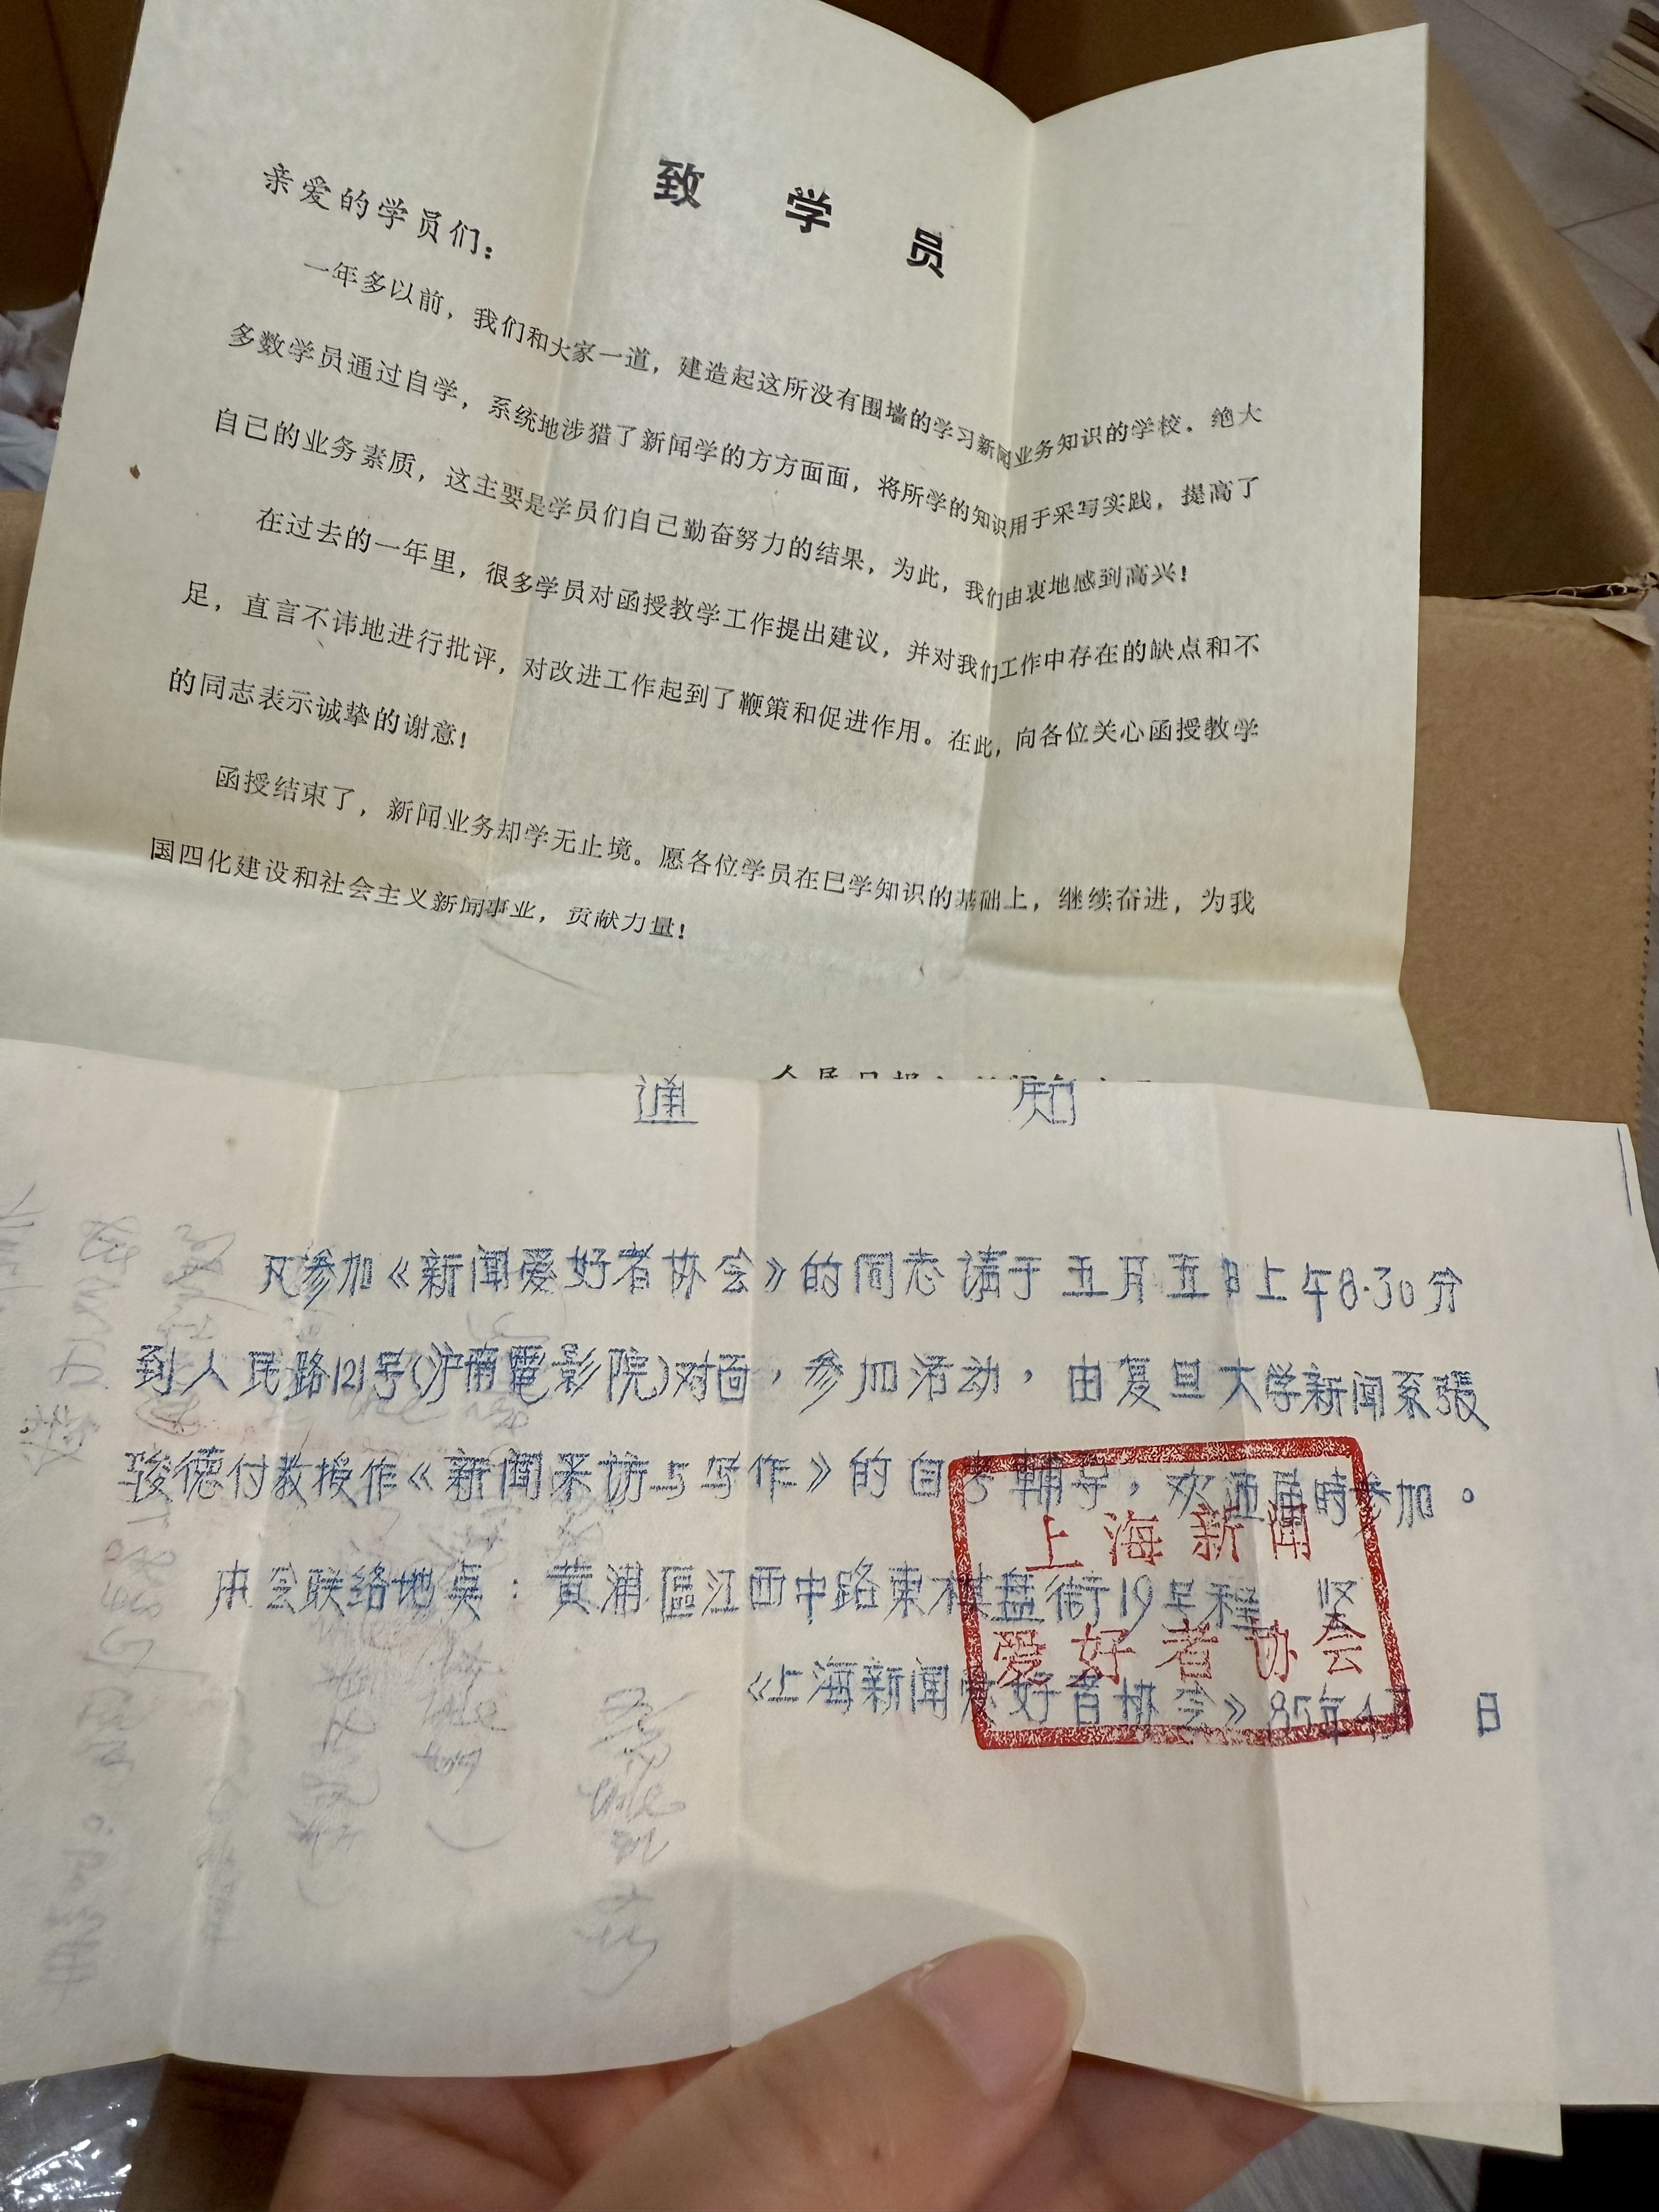 致学员
亲爱的学员们：
一年多以前，我们和大家一道，建造起这所没有围墙的学习新闻业务知识的学校。绝大
多数学员通过自学，系统地涉猎了新闻学的方方面面，将所学的知识用于采写实践，提高了
自己的业务素质，这主要是学员们自己勤奋努力的结果，为此，我们由衷地感到高兴！
在过去的一年里，很多学员对函授教学工作提出建议，并对我们工作中存在的缺点和不
足，直言不讳地进行批评，对改进工作起到了鞭策和促进作用。在此，向各位关心函授教学
的同志表示诚挚的谢意！
函授结束了，新闻业务却学无止境。愿各位学员在已学知识的基础上，继续奋进，为我
国四化建设和社会主义新闻事业，贡献力量！
通知
凡参加《新闻爱好者协会》的同志请于五月五日上午8·30分
到人民路121号(沪南電影院)对面，参加活动，由复旦大学新闻系張
骏德付教授作《新闻采访与写作》的自考輔导，欢迎届時参加。
本会联络地点：黄浦區江西中路東棋盘街19号程 坚
《上海新闻爱好者协会》85年4月 日
上海新闻
爱好者协会